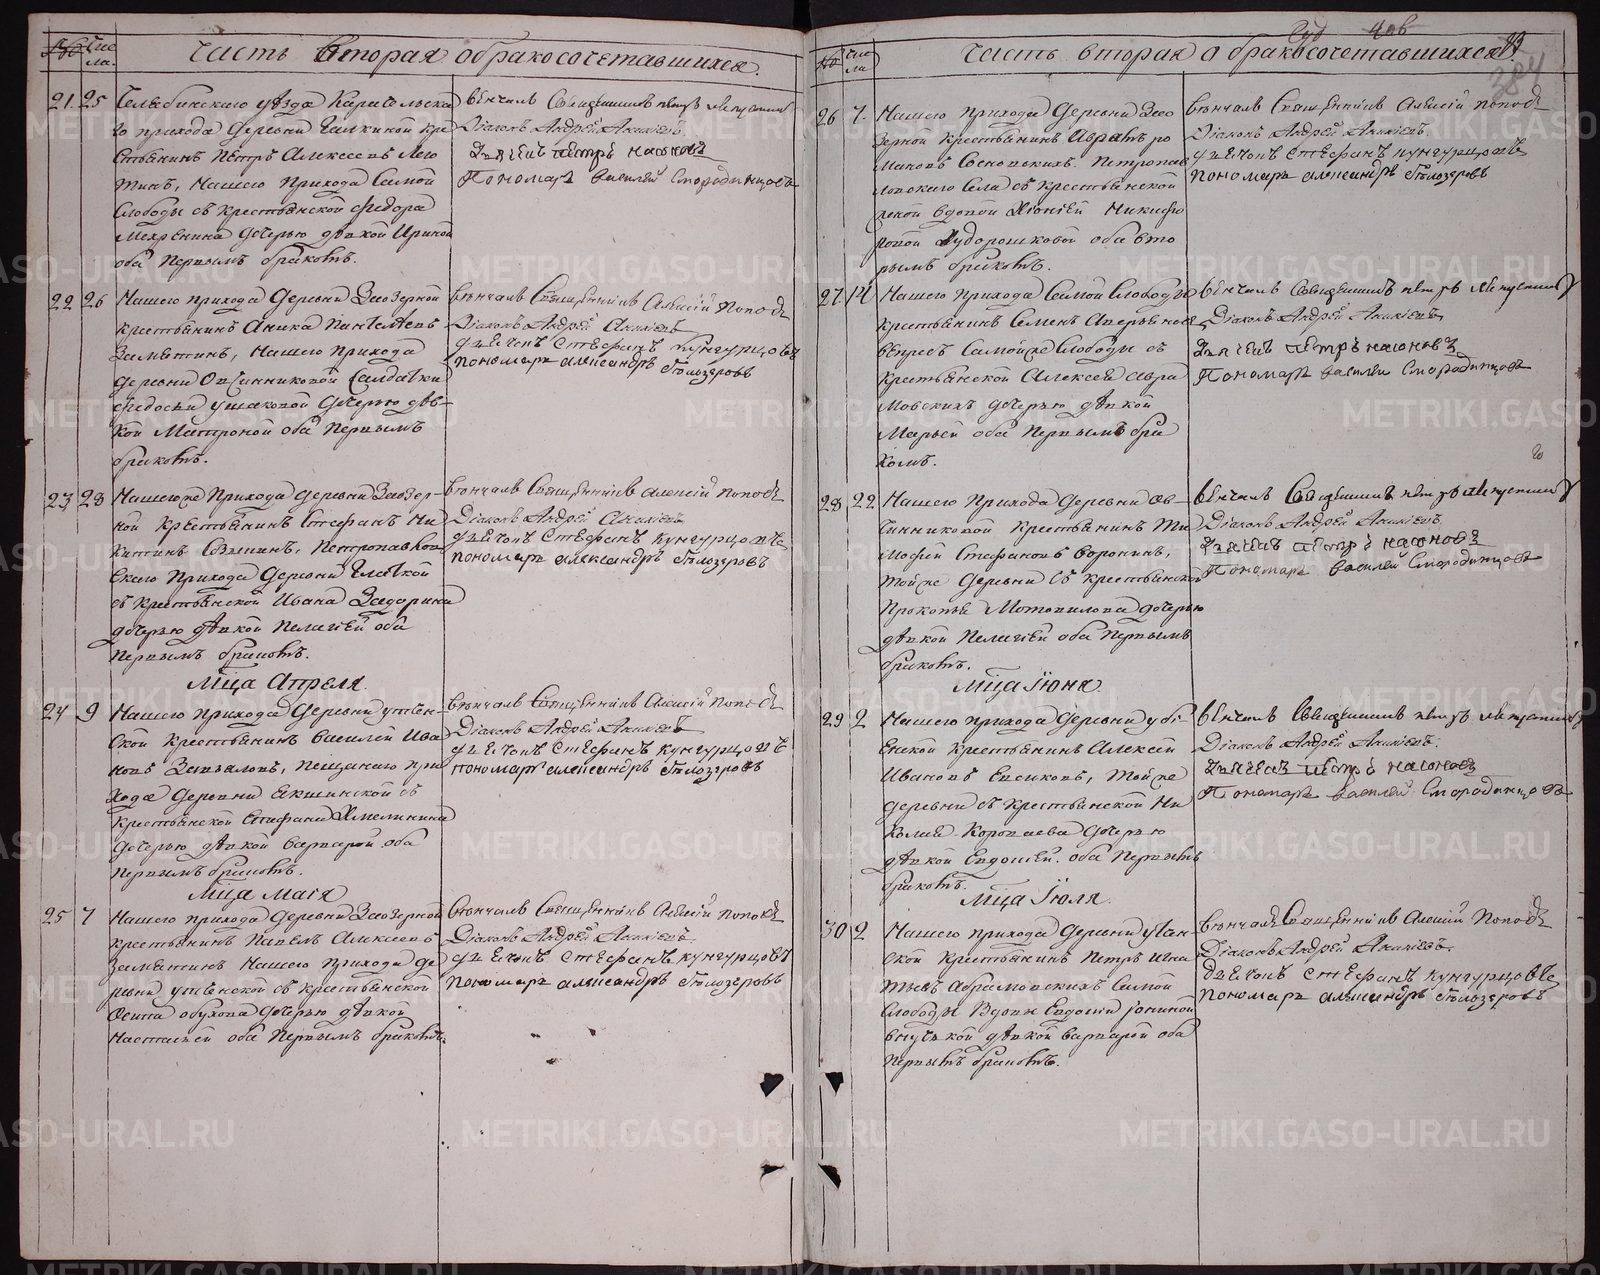 № Чис ла. Часть вторая о бракосочетавшихся.
21. 25 Челябинскаго уѣзда Карачельска
го прихода деревни Галкиной кре
стьянинъ Петръ Алексеевъ
нашего прихода самой
слободы съ крестьянской Федора
Мехренина дочерью дѣвкой Ириной
оба первымъ бракомъ.
Вѣнчалъ Священникъ Петръ
Діаконъ Андрей Аникіевъ
Дьячекъ Петръ
Пономарь Василей Смородинцовъ
22 26 Нашего прихода деревни Заозерной
крестьянинъ Аника Пантелѣевъ
Замятинъ, нашего прихода
деревни Овчинниковой салдатки
Федосьи Ушаковой дочерью дѣв-
кой Матроной оба первымъ
бракомъ.
Вѣнчалъ Священникъ Алексій Поповъ
Діаконъ Андрей Аникіевъ
Дьячекъ Стефанъ Кунгурцовъ
Пономарь Александръ Бѣлозеровъ
23 28 Нашегоже прихода деревни Заозер-
ной крестьянинъ Стефанъ Ни
китинъ Петропавлов
скаго прихода деревни
съ крестьянской Ивана Задорина
дочерью дѣвкой Пелагіей оба
первымъ бракомъ.
Вѣнчалъ Священникъ Алексій Поповъ
Діаконъ Андрей Аникіевъ
Дьячекъ Стефанъ Кунгурцовъ
Пономарь Александръ Бѣлозеровъ
Мца Апреля.
24 9 Нашего прихода деревни Утен-
ской крестьянинъ Василей Ива
новъ Завьяловъ, Пещанаго при
хода деревни Якшинской съ
крестьянской Стефана Хмелинина
дочерью дѣвкой Варварой оба
первымъ бракомъ.
Вѣнчалъ Священникъ Алексій Поповъ
Діаконъ Андрей Аникіевъ
Дьячекъ Стефанъ Кунгурцовъ
Пономарь Александръ Бѣлозеровъ
Мца Маія
25 7 Нашего прихода деревни Заозерной
крестьянинъ Павелъ Алексеевъ
Замятинъ нашего прихода де
ревни Утенской съ крестьянской
Осипа Обухова дочерью дѣвкой
Настасьей оба первымъ бракомъ.
Вѣнчалъ Священникъ Алексій Поповъ
Діаконъ Андрей Аникіевъ
Дьячекъ Стефанъ Кунгурцовъ
Пономарь Александръ Бѣлозеровъ
№ Чис ла Часть вторая о бракосочетавшихся.
384
26 7. Нашего прихода деревни Зао
зерной крестьянинъ Авраамъ Ро
мановъ Сосновскихъ. Петропав
ловскаго села съ крестьянской
женой вдовой Хіоніей Никифо
ровой Худорошковой оба вто
рымъ бракомъ.
Вѣнчалъ Священникъ Алексій Поповъ
Діаконъ Андрей Аникіевъ
Дьячекъ Стефанъ Кунгурцовъ
Пономарь Александръ Бѣлозеровъ
27 14 Нашего прихода самой слободы
крестьянинъ Семенъ Аверьяновъ
самойже слободы съ
крестьянской Алексея Авра
мовскихъ дочерью дѣвкой
Марьей оба первымъ бра
комъ.
Вѣнчалъ Священникъ Петръ
Діаконъ Андрей Аникіевъ
Дьячекъ Петръ
Пономарь Василей Смородинцовъ
28 22 Нашего прихода деревни Ов-
чинниковой крестьянинъ Ти
мофей Стефановъ Воронинъ,
тойже деревни съ крестьянской
Прокопья Мотовилова дочерью
дѣвкой Пелагіей оба первымъ
бракомъ.
Вѣнчалъ Священникъ Петръ
Діаконъ Андрей Аникіевъ
Дьячекъ Петръ
Пономарь Василей Смородинцовъ
Мца Іюня
29 2 Нашего прихода деревни Уби
енской крестьянинъ Алексей
Ивановъ Евсиковъ, тойже
деревни съ крестьянской Ни
колая Коропаева дочерью
дѣвкой Евдокіей. оба первымъ
бракомъ.
Вѣнчалъ Священникъ Петръ
Діаконъ Андрей Аникіевъ
Дьячекъ Петръ
Пономарь Василей Смородинцовъ
Мца Іюля.
30 2 Нашего прихода деревни Утен-
ской крестьянинъ Петръ Игна
тьевъ Абрамовскихъ самой
слободы вдовы Евдокіи
внучкой дѣвкой Варварой оба
первымъ бракомъ.
Вѣнчалъ Священникъ Алексій Поповъ
Діаконъ Андрей Аникіевъ
Дьячекъ Стефанъ Кунгурцовъ
Пономарь Александръ Бѣлозеровъ
METRIKI.GASO-URAL.RU